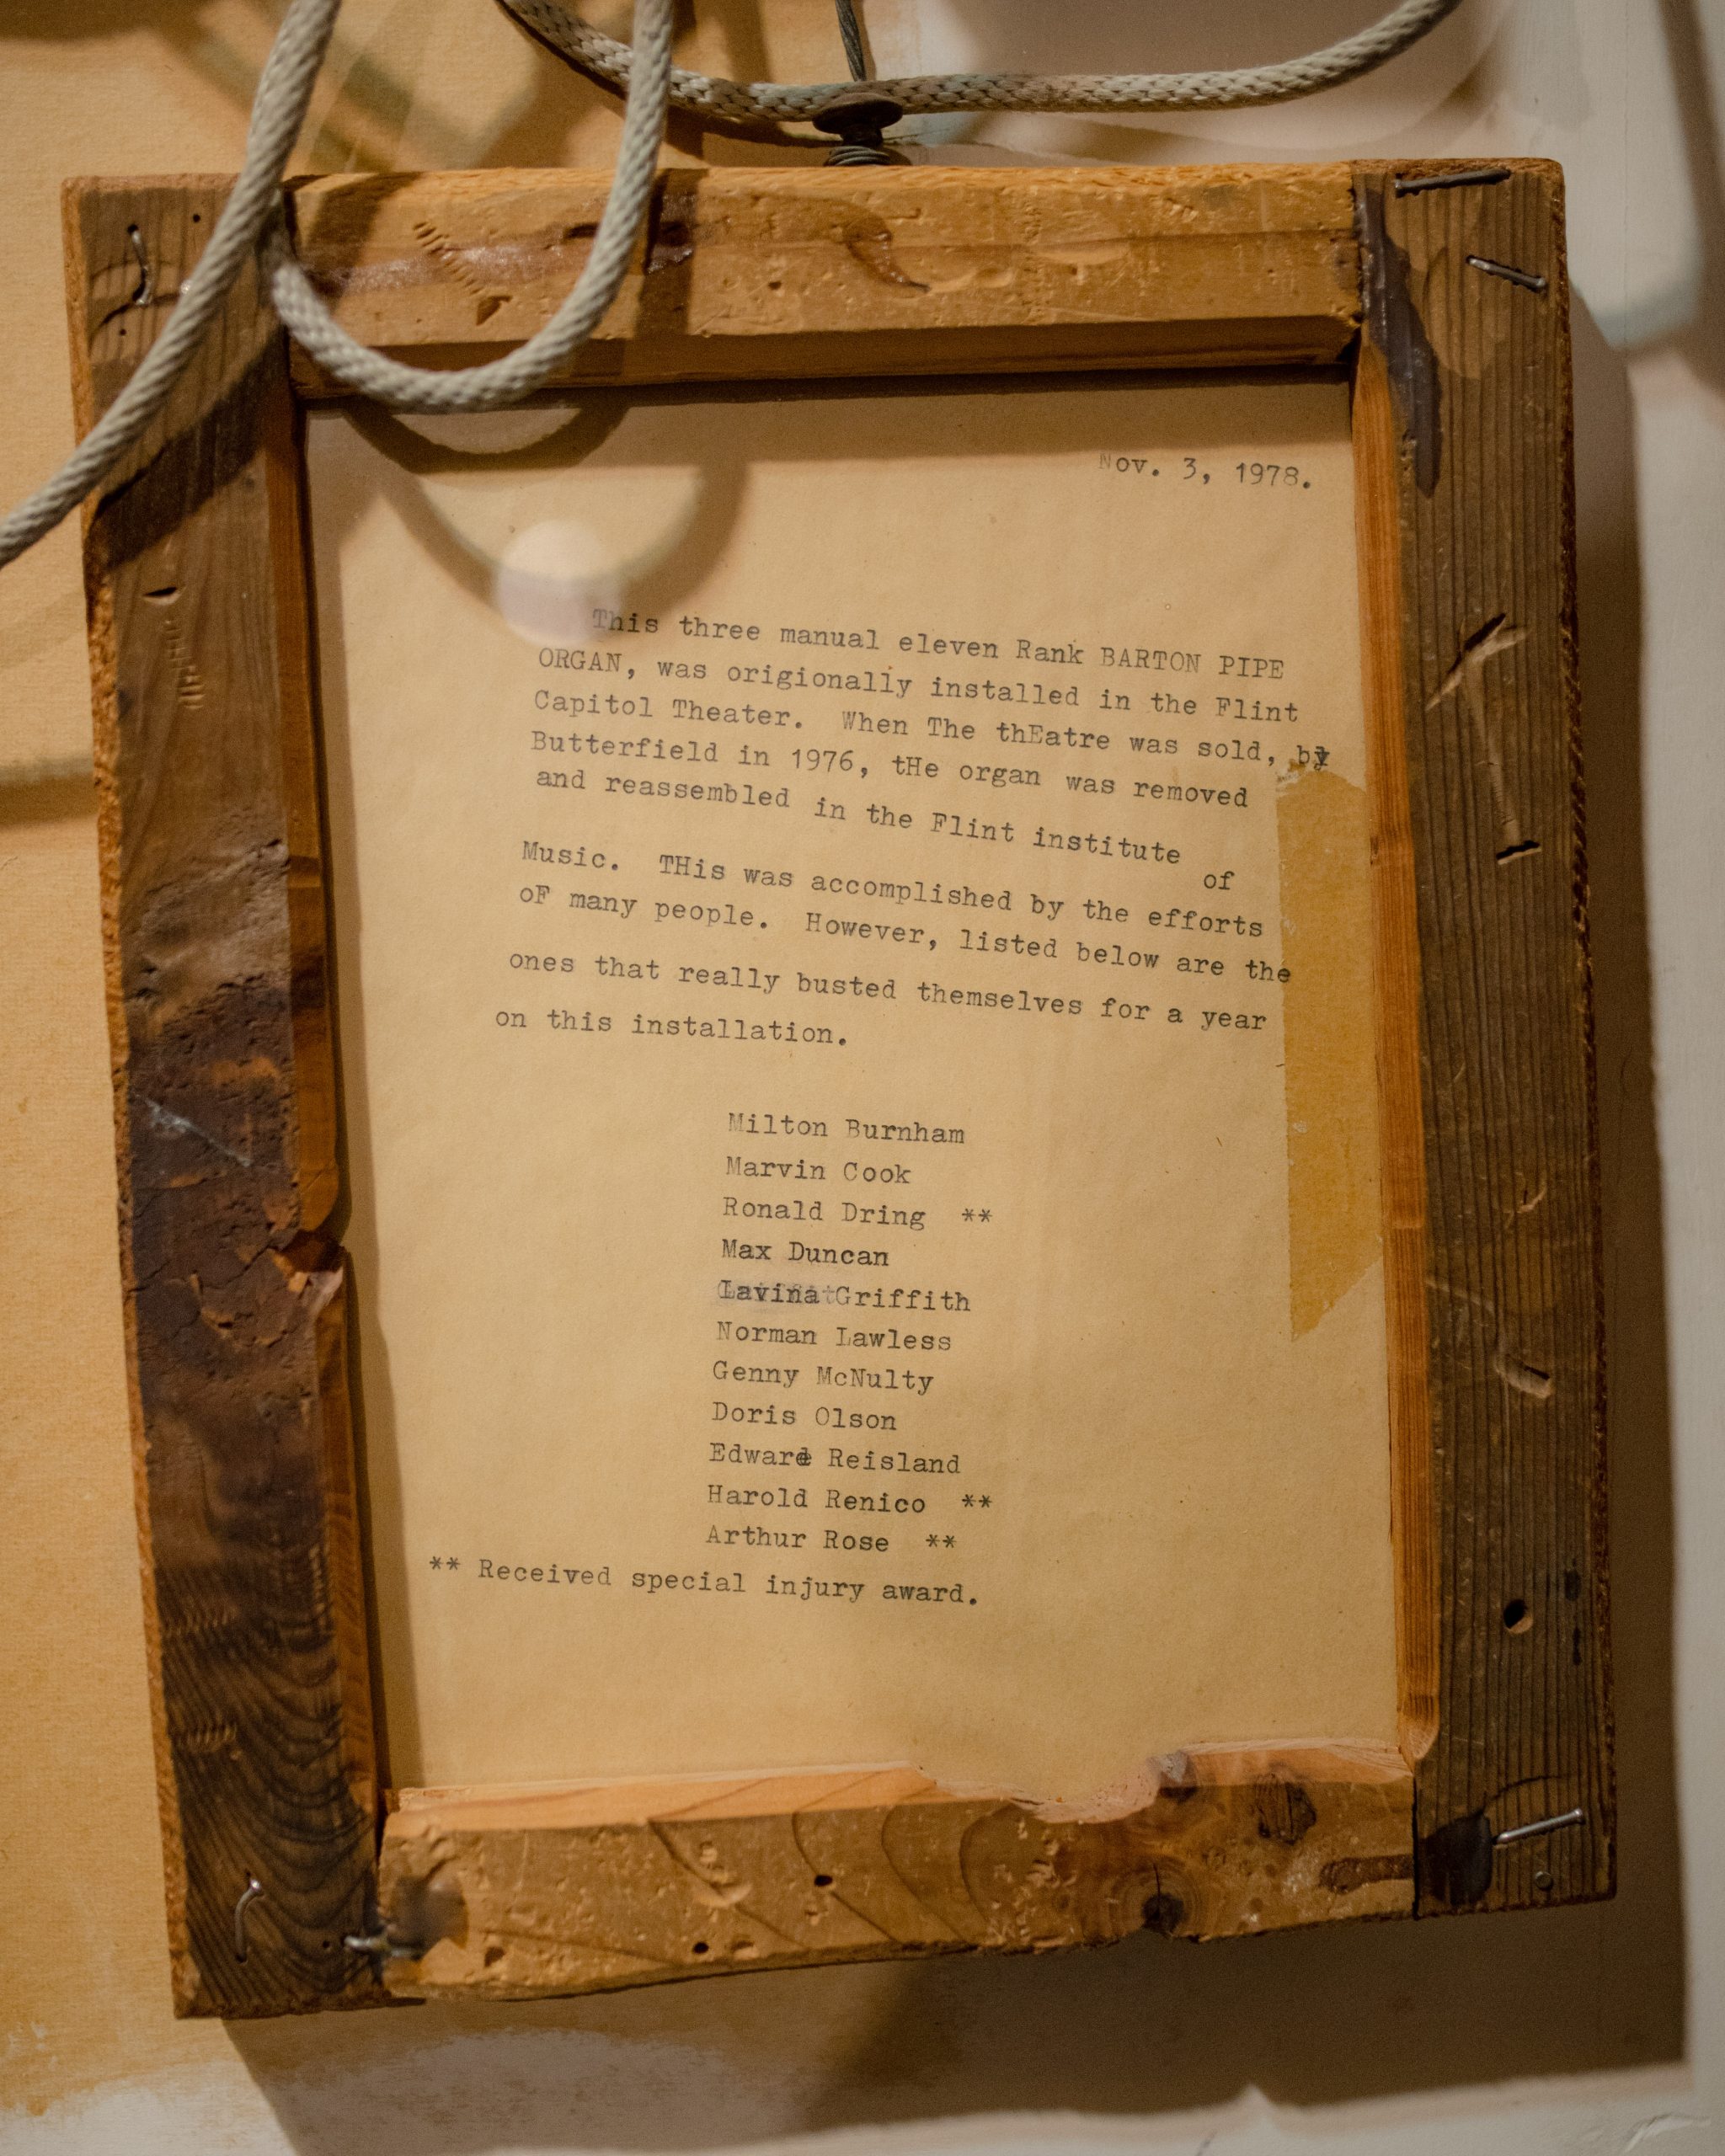 Nov. 3, 1978.
This three manual eleven Rank BARTON PIPE
ORGAN, was origionally installed in the Flint
Capitol Theater. When The thEatre was sold, by
Butterfield in 1976, tHe organ was removed
and reassembled in the Flint institute of
Music. THis was accomplished by the efforts
oF many people. However, listed below are the
ones that really busted themselves for a year
on this installation.
Milton Burnham
Marvin Cook
Ronald Dring **
Max Duncan
Lavina Griffith
Norman Lawless
Genny McNulty
Doris Olson
Edward Reisland
Harold Renico **
Arthur Rose **
** Received special injury award.